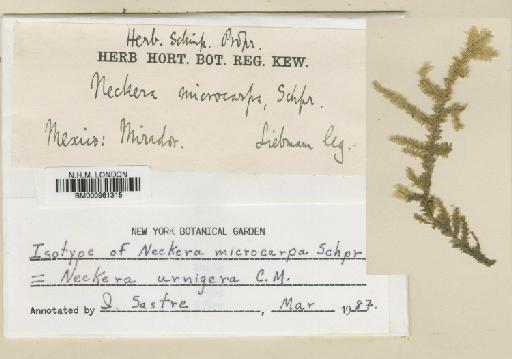 Herb. Schimp. Propr.
HERB HORT. BOT. REG. KEW.
Neckera microcarpa, Schpr.
Mexico: Mirador. Liebmann leg.
N.H.M. LONDON
BM000961315
NEW YORK BOTANICAL GARDEN
Isotype of Neckera microcarpa Schpr
= Neckera urnigera C.M.
Annotated by I Sastre, Mar 1987.